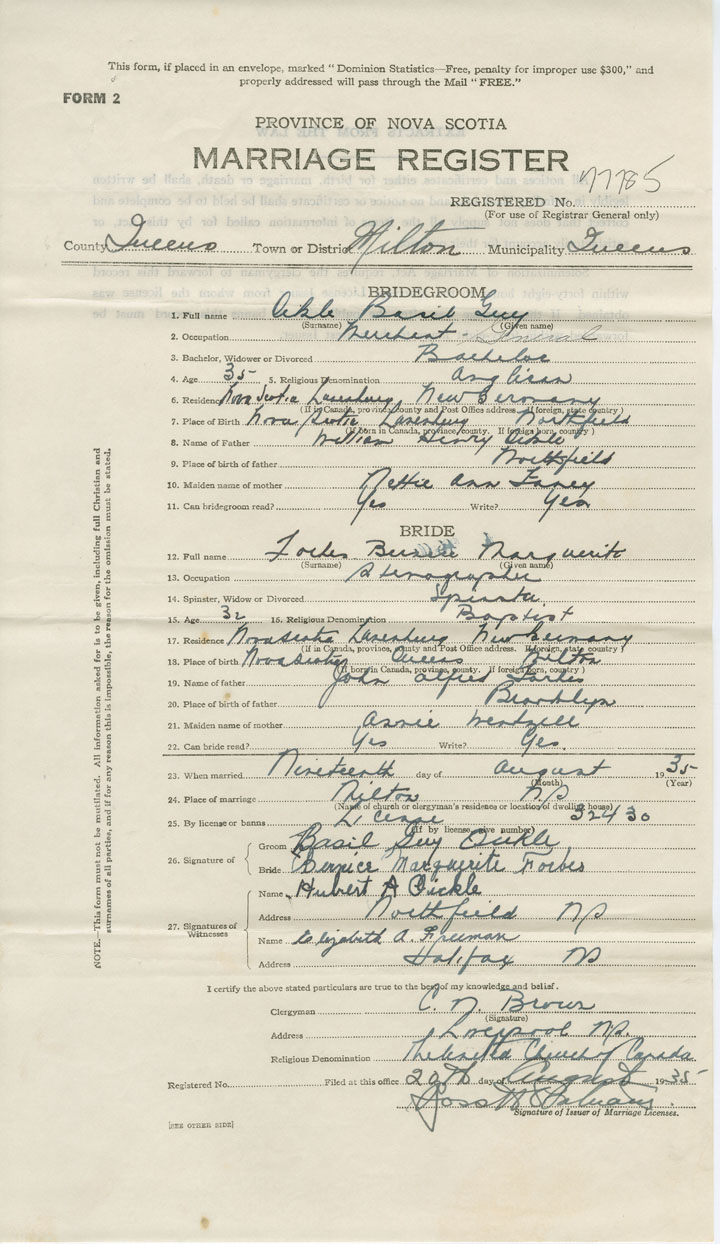 This form, if placed in an envelope, marked "Dominion Statistics—Free, penalty for improper use $300," and
properly addressed will pass through the Mail "FREE."
FORM 2
PROVINCE OF NOVA SCOTIA
MARRIAGE REGISTER
REGISTERED No. 77785
(For use of Registrar General only)
County Queens Town or District Milton Municipality Queens
BRIDEGROOM
1. Full name Oikle Basil Guy
(Surname) (Given name)
2. Occupation Merchant - General
3. Bachelor, Widower or Divorced Bachelor
4. Age 35 5. Religious Denomination Anglican
6. Residence Nova Scotia Lunenburg New Germany
(If in Canada, province, county and Post Office address. If foreign, state country)
7. Place of Birth Nova Scotia Lunenburg Northfield
(If born in Canada, province, county. If foreign born, country)
8. Name of Father William Henry Oikle
9. Place of birth of father Northfield
10. Maiden name of mother Nettie Ann
11. Can bridegroom read? Yes Write? Yes
BRIDE
12. Full name Forbes Bernice Marguerite
(Surname) (Given name)
13. Occupation Stenographer
14. Spinster, Widow or Divorced Spinster
15. Age 32 16. Religious Denomination Baptist
17. Residence Nova Scotia Lunenburg New Germany
(If in Canada, province, county and Post Office address. If foreign, state country)
18. Place of birth Nova Scotia Queens Milton
(If born in Canada, province, county. If foreign born, country)
19. Name of father John Alfred Forbes
20. Place of birth of father Brooklyn
21. Maiden name of mother Annie Wentzell
22. Can bride read? Yes Write? Yes.
23. When married Nineteenth day of August 1935
(Month) (Year)
24. Place of marriage Milton N.S
(Name of church or clergyman's residence or location of dwelling house)
25. By license or banns License 32430
(If by license, give number)
26. Signature of Groom Basil Guy Oickle
Bride Bernice Marguerite Forbes
27. Signatures of Witnesses
Name Hubert A Oickle
Address Northfield NS
Name Elizabeth A. Freeman
Address Halifax NS
I certify the above stated particulars are true to the best of my knowledge and belief.
Clergyman C. N. Brown
(Signature)
Address Liverpool N.S.
Religious Denomination The United Church of Canada
Registered No. Filed at this office 20th day of August 1935
Signature of Issuer of Marriage Licenses.
[SEE OTHER SIDE]
NOTE.—This form must not be mutilated. All information asked for is to be given, including full Christian and
surnames of all parties, and if for any reason this is impossible, the reason for the omission must be stated.